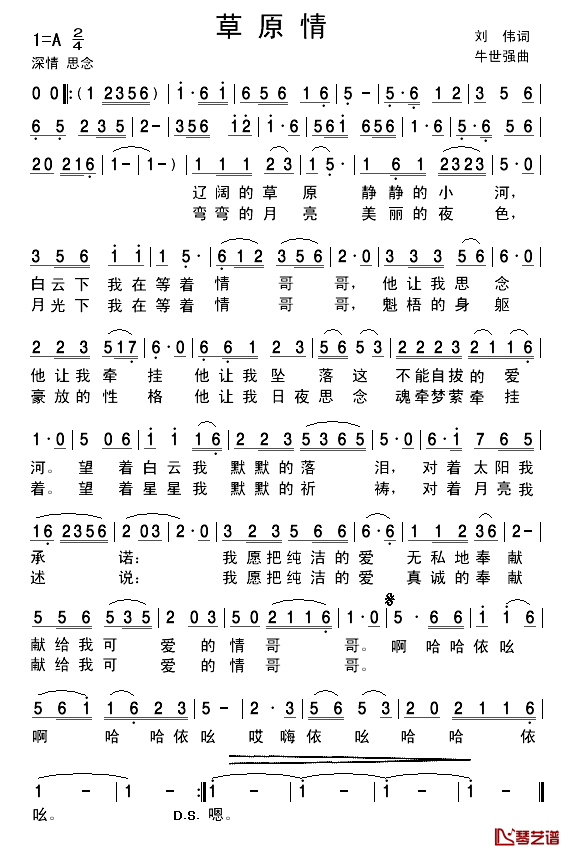 草原情
1=A 2/4
刘 伟词
深情 思念
牛世强曲
0 0 ‖: (1 2356 | i·6 i | 656 16 | 5 - | 5·6 12 | 3 56 |
6 5 235 | 2 - | 356 i2 | i·6 | 561 656 | i·6 | 5·5 6 |
20 216 | 1 - | 1 - ) | 1 1 1 23 | 1 5· | 1 61 2323 | 5·0 |
辽阔的草 原 静静的小 河,
弯弯的月 亮 美丽的夜 色,
3 56 i i | 1 5· | 612 356 | 2·0 | 3 3 3 56 | 6·0 |
白云下 我在等着 情 哥 哥, 他让我思 念
月光下 我在等着 情 哥 哥, 魁梧的身 躯
2 2 3 517 | 6·0 | 6 6 1 2 3 | 56 53 | 2223 211 6 |
他让我牵 挂 他让我坠 落这 不能自拔的 爱
豪放的性 格 他让我日夜思 念 魂牵梦萦牵 挂
1·0 | 5 06 | i i 16 | 2 2 3 5365 | 5·0 | 6·i 7 65 |
河。 望 着白云我 默默的落 泪, 对着 太阳我
着。 望 着星星我 默默的祈 祷, 对着 月亮我
16 2356 | 2 03 | 2·0 | 5 5 5 12 | 3 52 | 6·6 | 1 1 2 36 | 2 - |
承 诺: 我愿把纯洁的爱 无私地奉献
述 说: 我愿把纯洁的爱 真诚的奉献
5 56 535 | 2 03 | 50 2116 | 1·0 | 5· 66 | i i6 |
献给我可 爱 的 情 哥 哥。 啊 哈哈依吆
献给我可 爱 的 情 哥 哥。
5 6 i | 16 23 | 5 - | 2·3 | 56 53 | 20 2116 |
啊 哈 哈依吆 哎嗨依 吆 哈 哈 依
1 - | 1 - :‖ 1 - | 1 - | 1 - | 1 - ‖
吆。 D.S. 嗯。
琴艺谱